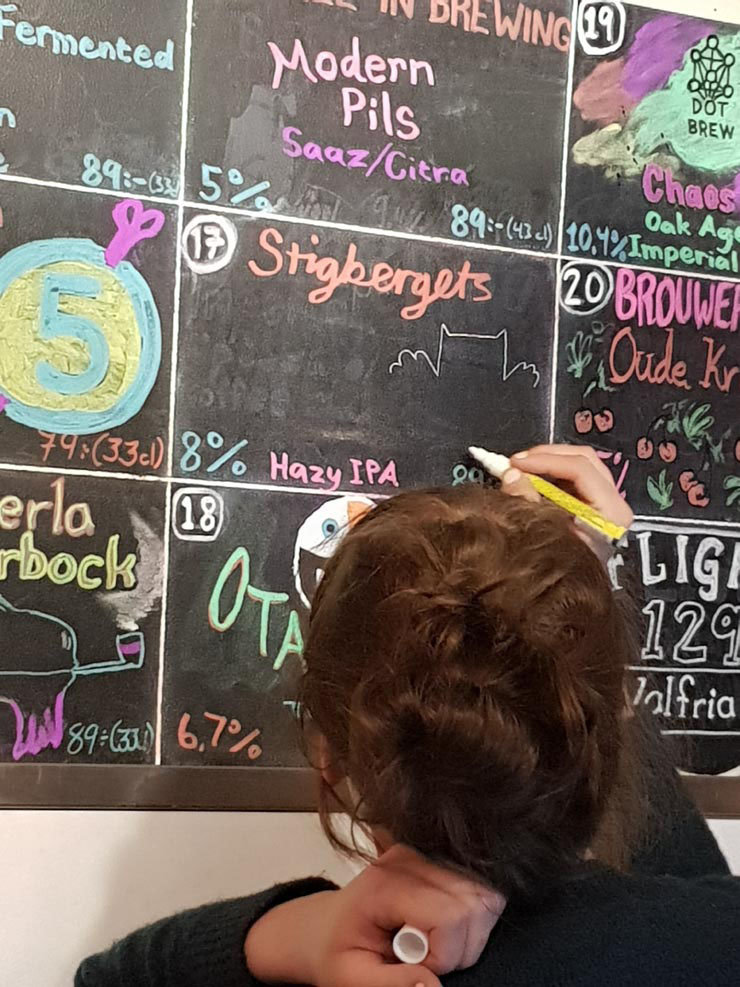 Fermented
89:-(33
IN BREWING
Modern
Pils
Saaz/Citra
5%
89:-(43 cl)
19
DOT
BREW
Chaos
Oak Age
10,4% Imperial
5
79:(33cl)
17
Stigbergets
8%
Hazy IPA
89
20
BROUWER
Oude Kr
%
erla
rbock
89:(33cl)
18
OTA
6,7%
LIGH
129
alfria